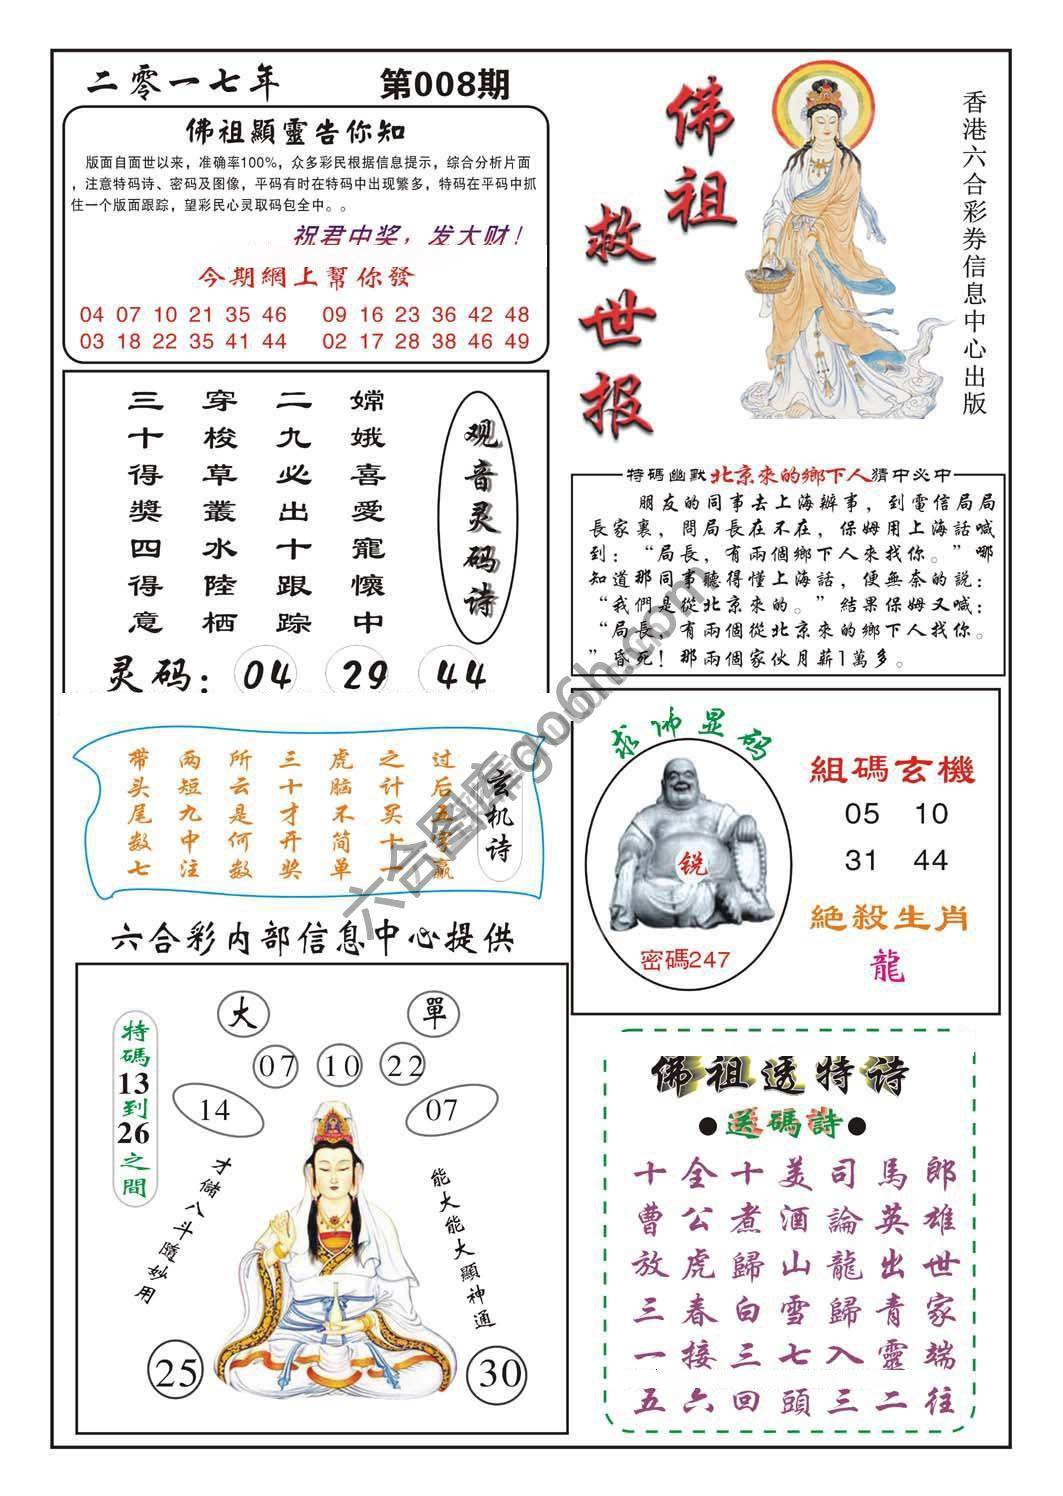 二零一七年
第008期
佛祖顯靈告你知
版面自面世以来，准确率100%，众多彩民根据信息提示，综合分析片面
，注意特码诗、密码及图像，平码有时在特码中出现繁多，特码在平码中抓
住一个版面跟踪，望彩民心灵取码包全中。。
祝君中奖，发大财！
今期網上幫你發
04 07 10 21 35 46 09 16 23 36 42 48
03 18 22 35 41 44 02 17 28 38 46 49
佛祖救世报
香港六合彩券信息中心出版
观音灵码诗
嫦娥喜愛寵懷中
二九必出十跟踪
穿梭草叢水陸栖
三十得獎四得意
灵码：04 29 44
特碼幽默北京來的鄉下人猜中必中
朋友的同事去上海辦事，到電信局局
長家裏，問局長在不在，保姆用上海話喊
到：“局長，有兩個鄉下人來找你。”哪
知道那同事聽得懂上海話，便無奈的說：
“我們是從北京來的。”結果保姆又喊：
“局長，有兩個從北京來的鄉下人找你。
”昏死！那兩個家伙月薪1萬多。
玄机诗
过后五字赢
之计买十一
虎脑不简单
三十才开奖
所云是何数
两短九中注
带头尾数七
求佛显码
锐
密碼247
組碼玄機
05 10
31 44
絕殺生肖
龍
六合彩内部信息中心提供
特碼13到26之間
大
單
07 10 22
14
07
才儲八斗隨妙用
能大能大顯神通
25
30
佛祖透特诗
●送碼詩●
十全十美司馬郎
曹公煮酒論英雄
放虎歸山龍出世
三春白雪歸青家
一接三七入靈端
五六回頭三二往
六合图库go6h.com